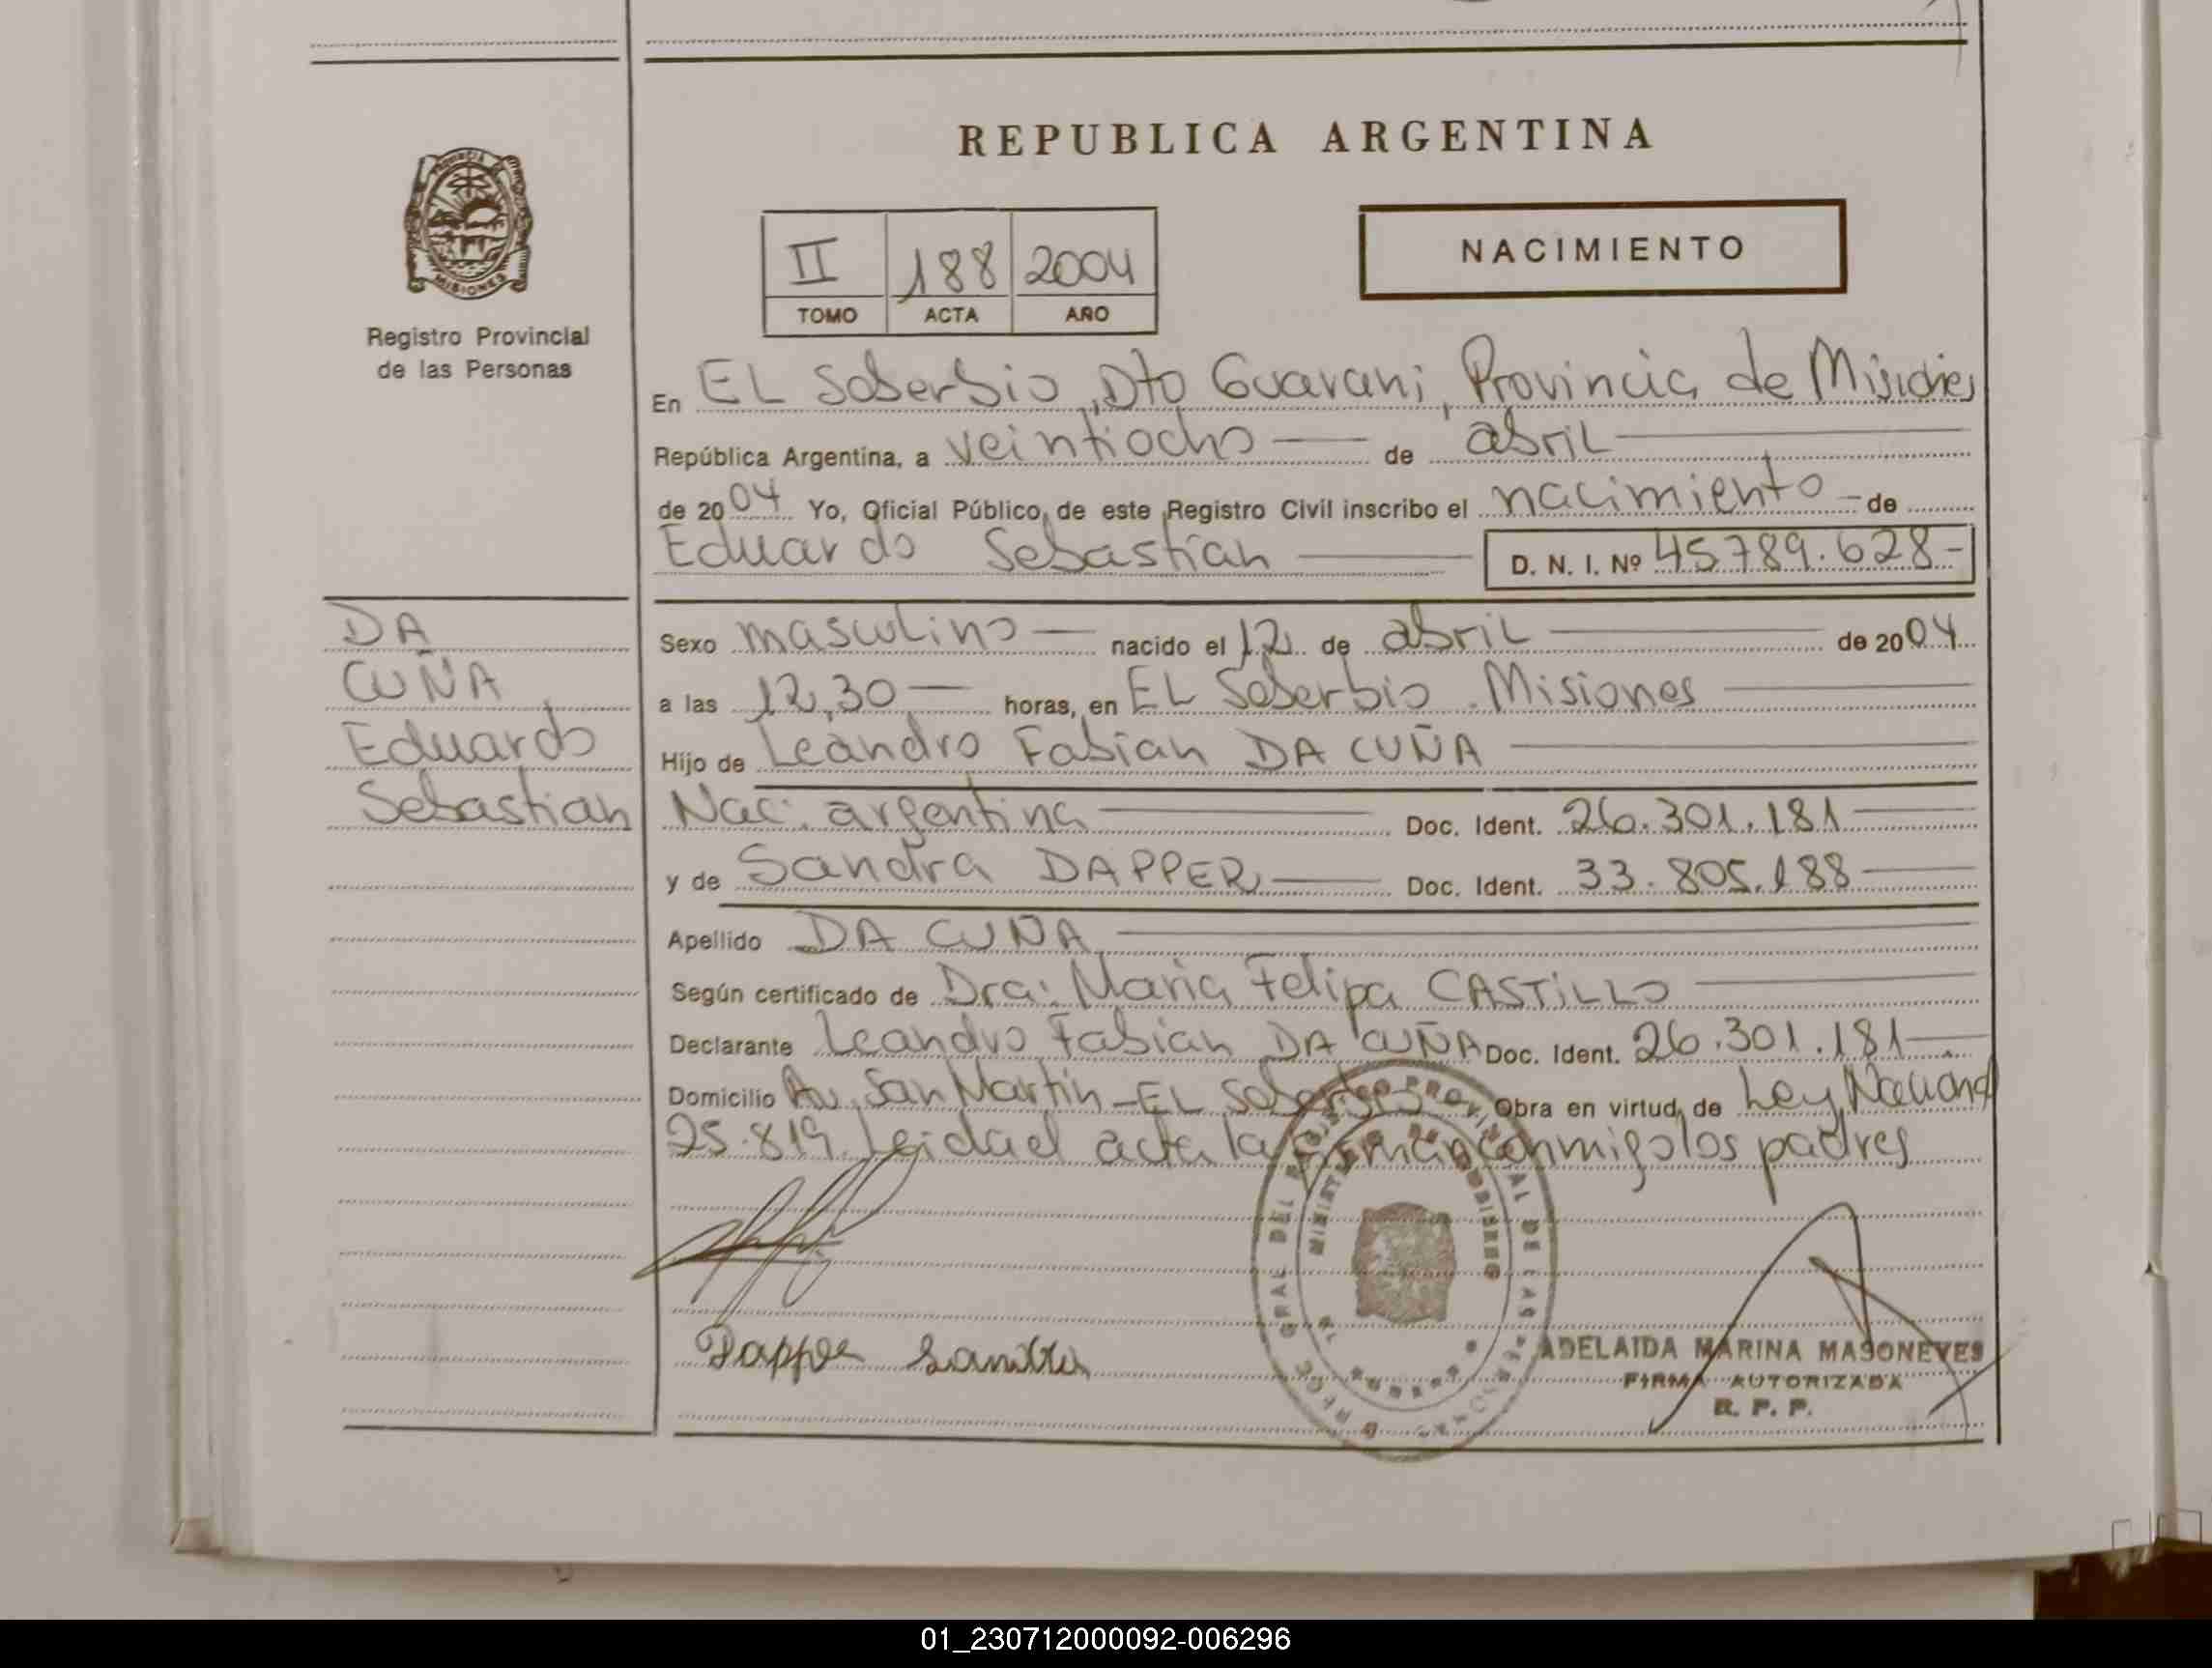 REPUBLICA ARGENTINA
NACIMIENTO
II 188 2004
TOMO ACTA AÑO
MISIONES
Registro Provincial
de las Personas
En EL Soberbio, Dto Guarani, Provincia de Misiones
República Argentina, a veintiocho de abril
de 2004 Yo, Oficial Público, de este Registro Civil inscribo el nacimiento de
Eduardo Sebastian D. N. I. Nº 45789.628-
DA
CUÑA
Eduardo
Sebastian
Sexo masculino nacido el 12 de abril de 2004
a las 12,30 horas, en EL Soberbio. Misiones
Hijo de Leandro Fabian DA CUÑA
Nac: argentina Doc. Ident. 26.301.181
y de Sandra DAPPER Doc. Ident. 33.805.188
Apellido DA CUÑA
Según certificado de Dra: Maria Felipa CASTILLO
Declarante Leandro Fabian DA CUÑA Doc. Ident. 26.301.181
Domicilio Av. San Martin - EL Soberbio. Obra en virtud de Ley Nacional
25.819. Leida el acta la firman conmigo los padres
Dapper Sandra
ADELAIDA MARINA MASONEVES
FIRMA AUTORIZADA
R. P. P.
01_230712000092-006296